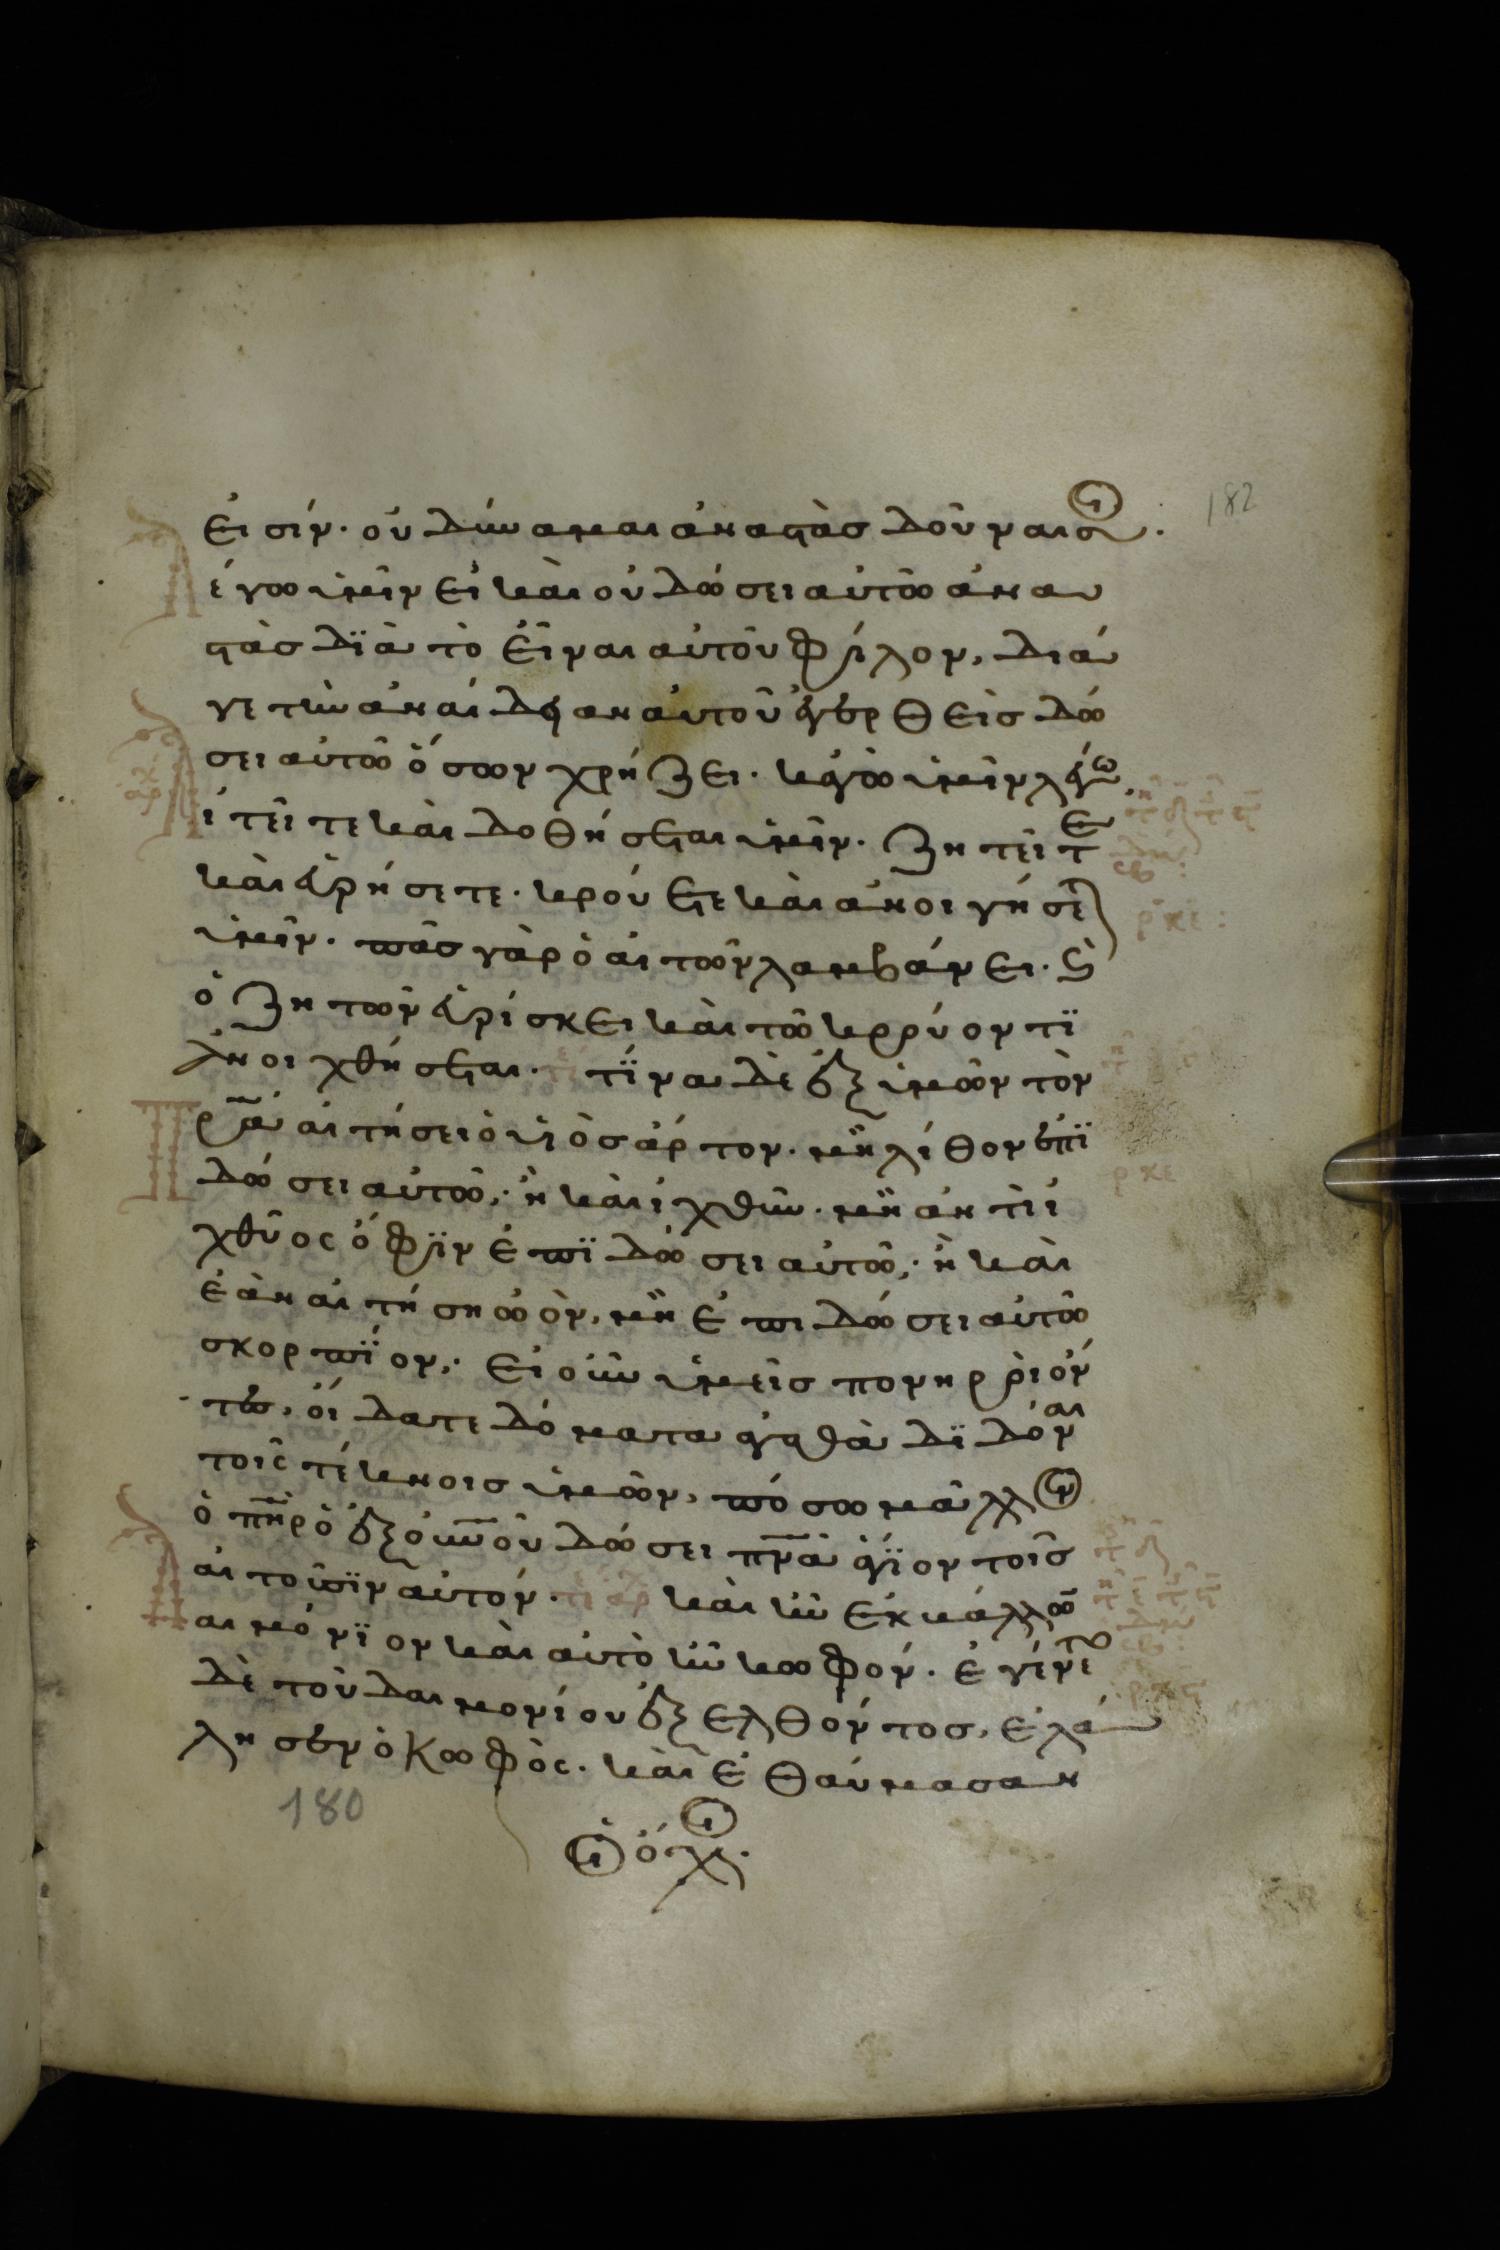 εἰσίν· οὐ δύναμαι ἀναστὰς δοῦναι σοι·
λέγω ὑμῖν εἰ καὶ οὐ δώσει αὐτῶ ἀνα
στὰς διὰ τὸ εἶναι αὐτοῦ φίλον, διά
γε τὴν ἀναίδειαν αὐτοῦ ἐγερθεὶς δώ
σει αὐτῶ ὅσων χρήζει· κἀγὼ ὑμῖν λέγω,
αἰτεῖτε καὶ δοθήσεται ὑμῖν· ζητεῖτε
καὶ εὑρήσετε· κρούετε καὶ ἀνοιγήσεται
ὑμῖν· πᾶς γὰρ ὁ αἰτῶν λαμβάνει· καὶ
ὁ ζητῶν εὑρίσκει καὶ τῶ κρούοντι
ἀνοιχθήσεται· τίνα δὲ ἐξ ὑμῶν τὸν
πρα αἰτήσει ὁ υἱὸς ἄρτον· μὴ λίθον ἐπι
δώσει αὐτῶ; ἢ καὶ ἰχθύν· μὴ ἀντὶ ἰ
χθύος ὄφιν ἐπιδώσει αὐτῶ; ἢ καὶ
ἐὰν αἰτήσῃ ὠόν, μὴ ἐπιδώσει αὐτῶ
σκορπίον; εἰ οὖν ὑμεῖς πονηροὶ ὄν
τες, οἴδατε δόματα ἀγαθὰ διδόναι
τοῖς τέκνοις ὑμῶν, πόσω μᾶλλον
ὁ πηρ ὁ ἐξ οὐνοῦ δώσει πνα ἅγιον τοῖς
αἰτοῦσιν αὐτόν· καὶ ἦν ἐκβάλλων
δαιμόνιον καὶ αὐτὸ ἦν κωφόν· ἐγένετο
δὲ τοῦ δαιμονίου ἐξελθόντος, ἐλά
λησεν ὁ κωφὸς· καὶ ἐθαύμασαν
οἱ ὄχλοι·
182
180